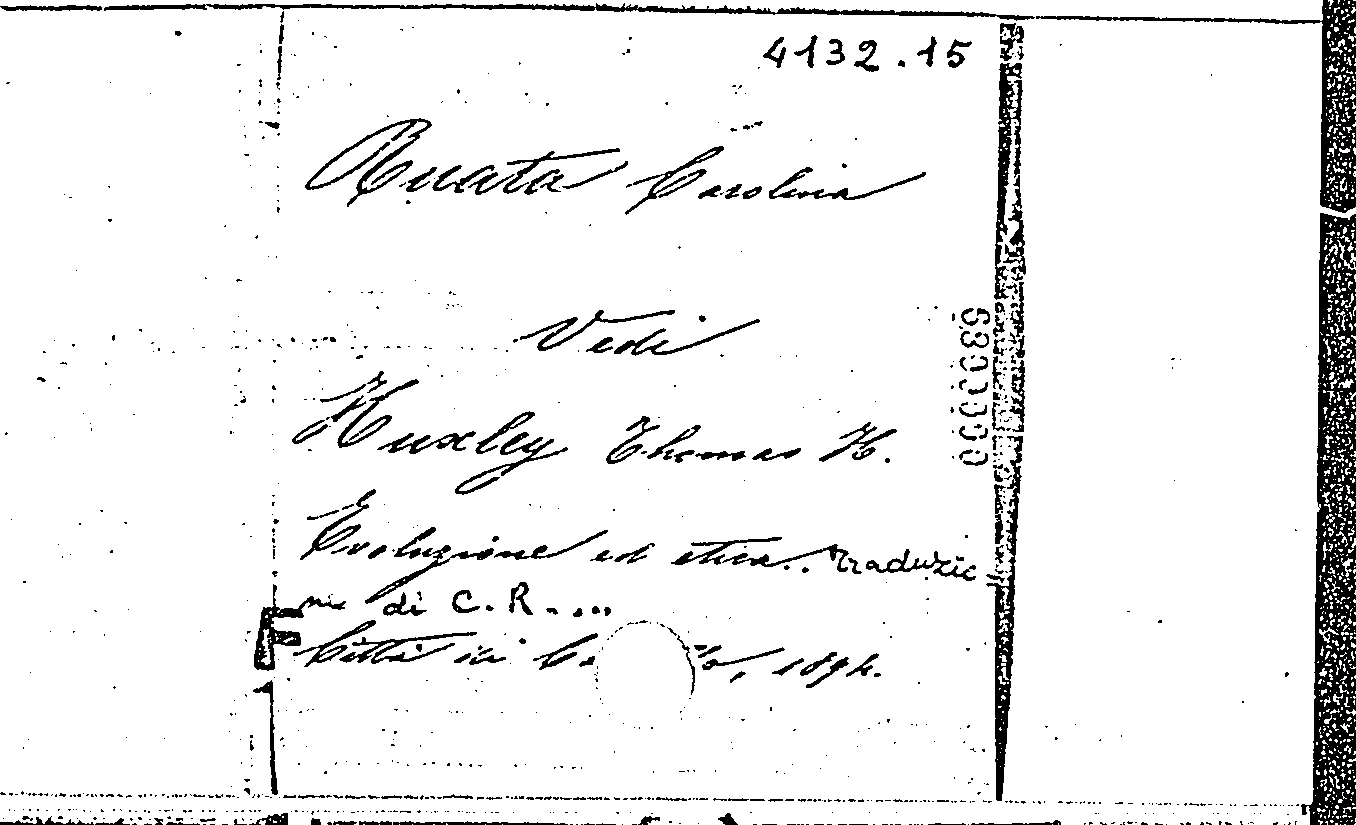 4132.15
Ruata Carolina
Vedi
Huxley Thomas H.
Evoluzione ed etica. Traduzio
ne di C. R. ...
Città di Ca lo, 1894.
6800000